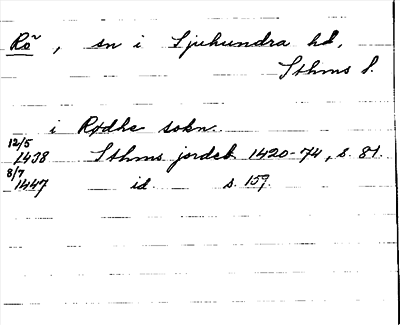 Rö, sn i Sjuhundra hd,
Sthms l.
i Rødhe sokn.
12/5 1438 Sthms jordeb 1420-74, s. 81.
8/7 1447 id. s. 159.